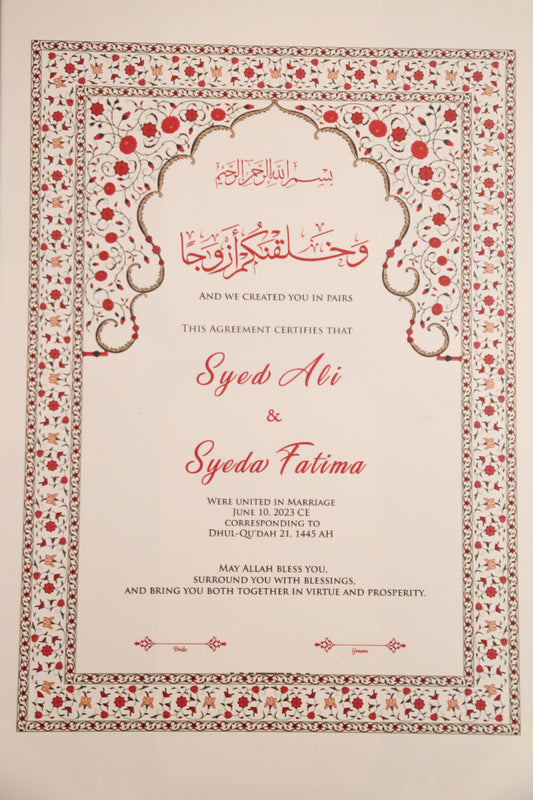 بسم الله الرحمن الرحيم
وَخَلَقْنَٰكُمْ أَزْوَٰجًا
And we created you in pairs
This Agreement certifies that
Syed Ali
&
Syeda Fatima
Were united in Marriage
June 10, 2023 CE
corresponding to
Dhul-Qu'dah 21, 1445 AH
May Allah bless you,
surround you with blessings,
and bring you both together in virtue and prosperity.
Bride Groom